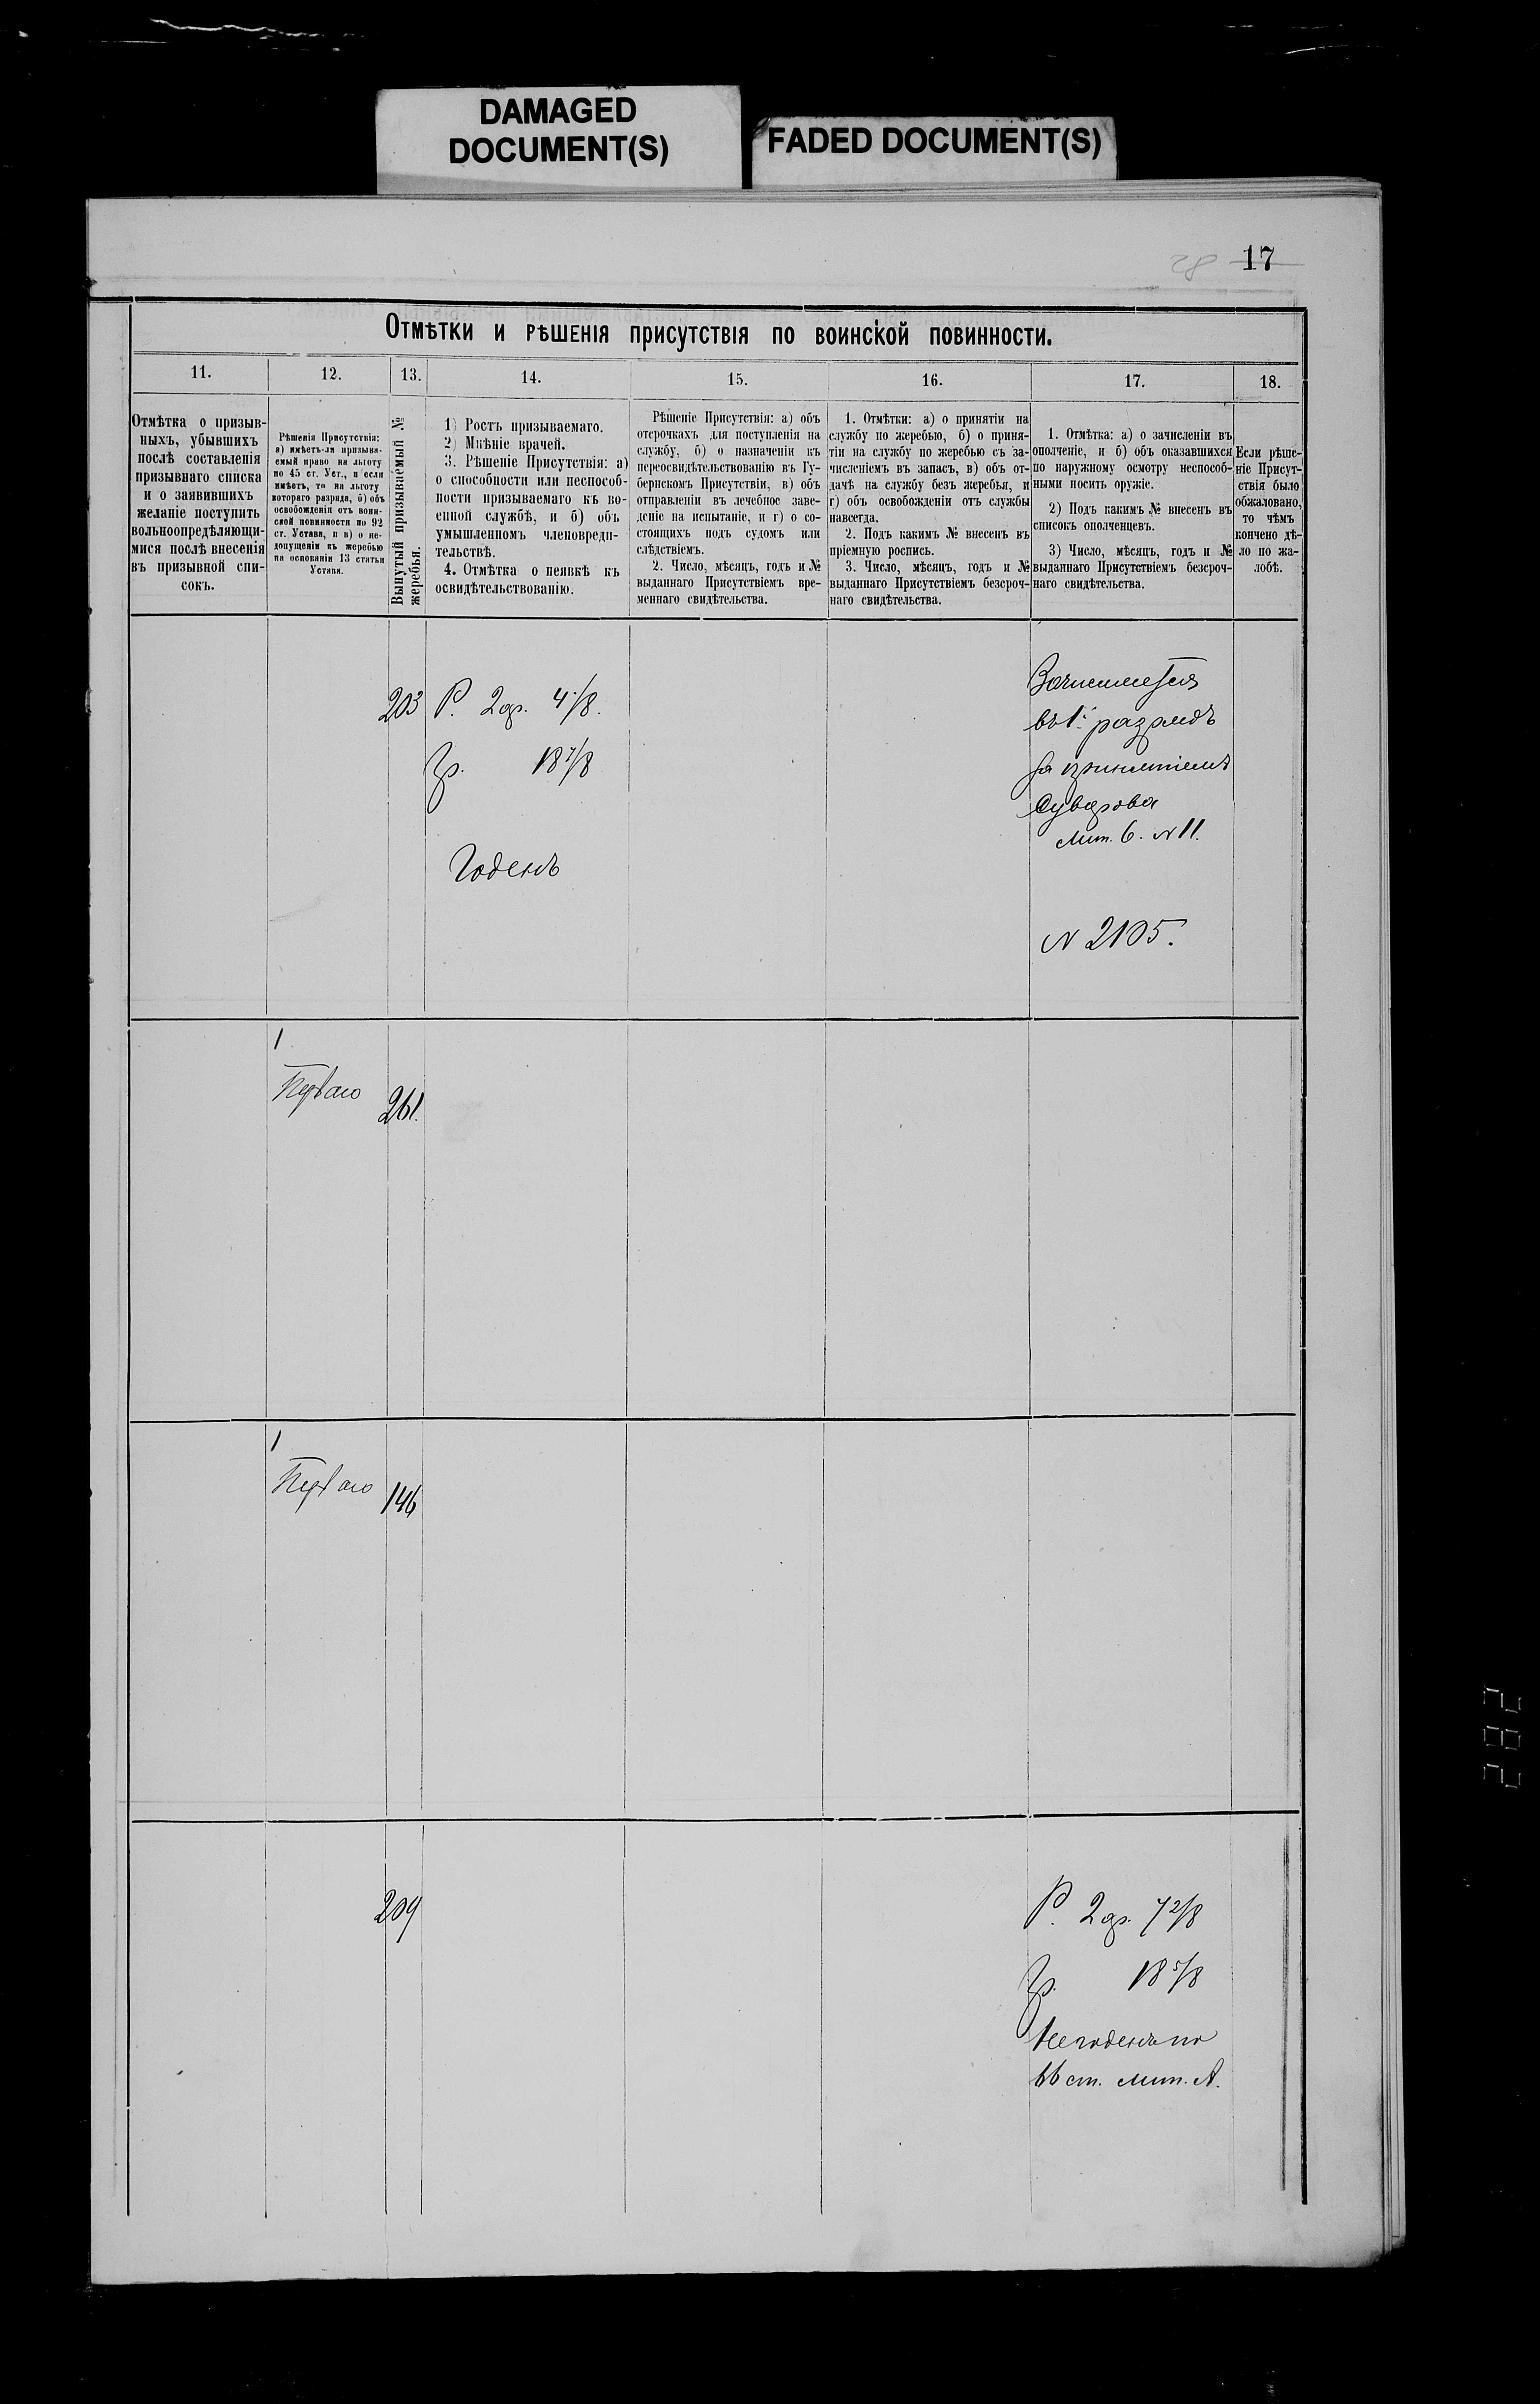 DAMAGED
DOCUMENT(S)
FADED DOCUMENT(S)
28 17
Отмѣтки и рѣшенія присутствія по воинской повинности.
11.
12.
13.
14.
15.
16.
17.
18.
Отмѣтка о призыв-
ныхъ, убывшихъ
послѣ составленія
призывнаго списка
и о заявившихъ
желаніе поступить
вольноопредѣляющи-
мися послѣ внесенія
въ призывной спи-
сокъ.
Рѣшенія Присутствія:
а) имѣетъ-ли призыва-
емый право на льготу
по 45 ст. Уст., и если
имѣетъ, то на льготу
котораго разряда, б) объ
освобожденіи отъ воин-
ской повинности по 92
ст. Устава, и в) о не-
допущеніи къ жеребью
на основаніи 13 статьи
Устава.
Вынутый призываемый №
жеребья.
1) Ростъ призываемаго.
2) Мнѣніе врачей.
3. Рѣшеніе Присутствія: а)
о способности или неспособ-
ности призываемаго къ во-
енной службѣ, и б) объ
умышленномъ членовреди-
тельствѣ.
4. Отмѣтка о неявкѣ къ
освидѣтельствованію.
Рѣшеніе Присутствія: а) объ
отсрочкахъ для поступленія на
службу, б) о назначеніи къ
переосвидѣтельствованію въ Гу-
бернскомъ Присутствіи, в) объ
отправленіи въ лечебное заве-
деніе на испытаніе, и г) о со-
стоящихъ подъ судомъ или
слѣдствіемъ.
2. Число, мѣсяцъ, годъ и №
выданнаго Присутствіемъ вре-
меннаго свидѣтельства.
1. Отмѣтки: а) о принятіи на
службу по жеребью, б) о приня-
тіи на службу по жеребью съ за-
численіемъ въ запасъ, в) объ от-
дачѣ на службу безъ жеребья, и
г) объ освобожденіи отъ службы
навсегда.
2. Подъ какимъ № внесенъ въ
пріемную роспись.
3. Число, мѣсяцъ, годъ и №
выданнаго Присутствіемъ безсроч-
наго свидѣтельства.
1. Отмѣтка: а) о зачисленіи въ
ополченіе, и б) объ оказавшихся
по наружному осмотру неспособ-
ными носить оружіе.
2) Подъ какимъ № внесенъ въ
списокъ ополченцевъ.
3) Число, мѣсяцъ, годъ и №
выданнаго Присутствіемъ безсроч-
наго свидѣтельства.
Если рѣше-
ніе Присут-
ствія было
обжаловано,
то чѣмъ
кончено дѣ-
ло по жа-
лобѣ.
203
Р. 2 ар. 4/8.
Гр. 18 7/8
Годенъ
въ 1й разрядъ
за принятіемъ
Суварова
Лит. б. № 11.
№ 2105.
1
Перваго
261.
1
Перваго
146
209
Р. 2 ар. 7 2/8
Гр. 18 5/8
Негоденъ по
66 ст. лит. А.
282